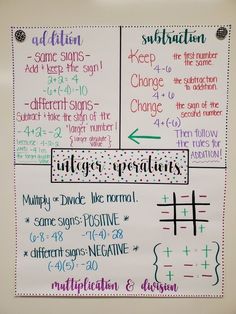 addition
- same signs -
Add & keep the sign!
2+2=4
-6+(-4)=(-10)
- different signs -
Subtract & take the sign of the
larger number!
-4+2=-2
because
subtraction
Keep the first number
the same.
4-6
Change the subtraction
to addition.
Change the sign of the
second number
4+(-6)
Then follow
the rules for
ADDITION!
integer operations
Multiply or Divide like normal.
* same signs: POSITIVE *
6·8=48 -7(-4)=28
* different signs: NEGATIVE *
(-4)(5)=-20
multiplication & division